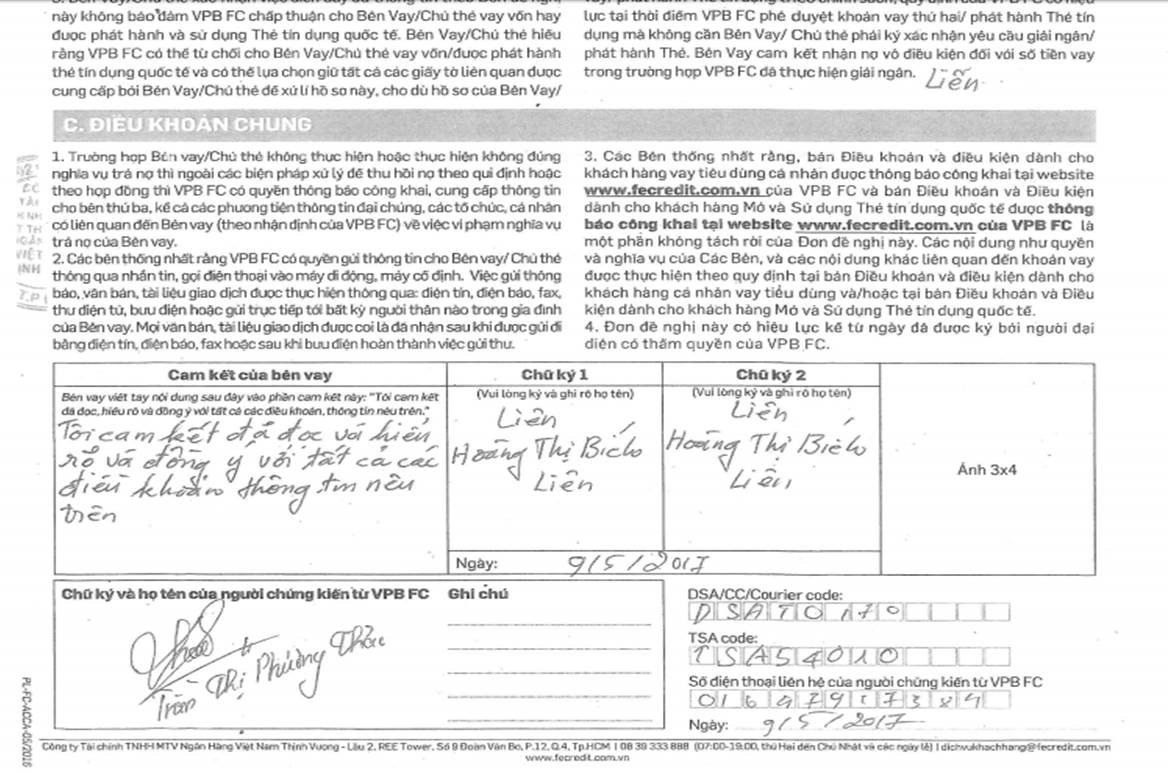 này không bảo đảm VPB FC chấp thuận cho Bên Vay/Chủ thẻ vay vốn hay
được phát hành và sử dụng Thẻ tín dụng quốc tế. Bên Vay/Chủ thẻ hiểu
rằng VPB FC có thể từ chối cho Bên Vay/Chủ thẻ vay vốn/được phát hành
thẻ tín dụng quốc tế và có thể lựa chọn giữ tất cả các giấy tờ liên quan được
cung cấp bởi Bên Vay/Chủ thẻ để xử lí hồ sơ này, cho dù hồ sơ của Bên Vay/
lực tại thời điểm VPB FC phê duyệt khoản vay thứ hai/ phát hành Thẻ tín
dụng mà không cần Bên Vay/ Chủ thẻ phải ký xác nhận yêu cầu giải ngân/
phát hành Thẻ. Bên Vay cam kết nhận nợ vô điều kiện đối với số tiền vay
trong trường hợp VPB FC đã thực hiện giải ngân. Liên
C. ĐIỀU KHOẢN CHUNG
1. Trường hợp Bên vay/Chủ thẻ không thực hiện hoặc thực hiện không đúng
nghĩa vụ trả nợ thì ngoài các biện pháp xử lý để thu hồi nợ theo qui định hoặc
theo hợp đồng thì VPB FC có quyền thông báo công khai, cung cấp thông tin
cho bên thứ ba, kể cả các phương tiện thông tin đại chúng, các tổ chức, cá nhân
có liên quan đến Bên vay (theo nhận định của VPB FC) về việc vi phạm nghĩa vụ
trả nợ của Bên vay.
2. Các bên thống nhất rằng VPB FC có quyền gửi thông tin cho Bên Vay/ Chủ thẻ
thông qua nhắn tin, gọi điện thoại vào máy di động, máy cố định. Việc gửi thông
báo, văn bản, tài liệu giao dịch được thực hiện thông qua: điện tín, điện báo, fax,
thư điện tử, bưu điện hoặc gửi trực tiếp tới bất kỳ người thân nào trong gia đình
của Bên vay. Mọi văn bản, tài liệu giao dịch được coi là đã nhận sau khi được gửi đi
bằng điện tín, điện báo, fax hoặc sau khi bưu điện hoàn thành việc gửi thư.
3. Các Bên thống nhất rằng, bản Điều khoản và điều kiện dành cho
khách hàng vay tiêu dùng cá nhân được thông báo công khai tại website
www.fecredit.com.vn của VPB FC và bản Điều khoản và Điều kiện
dành cho khách hàng Mở và Sử dụng Thẻ tín dụng quốc tế được thông
báo công khai tại website www.fecredit.com.vn của VPB FC là
một phần không tách rời của Đơn đề nghị này. Các nội dung như quyền
và nghĩa vụ của Các Bên, và các nội dung khác liên quan đến khoản vay
được thực hiện theo quy định tại bản Điều khoản và điều kiện dành cho
khách hàng cá nhân vay tiêu dùng và/hoặc tại bản Điều khoản và Điều
kiện dành cho khách hàng Mở và Sử dụng Thẻ tín dụng quốc tế.
4. Đơn đề nghị này có hiệu lực kể từ ngày đã được ký bởi người đại
diện có thẩm quyền của VPB FC.
Cam kết của bên vay
Bên vay viết tay nội dung sau đây vào phần cam kết này: "Tôi cam kết
đã đọc, hiểu rõ và đồng ý với tất cả các điều khoản, thông tin nêu trên."
Tôi cam kết đã đọc và hiểu
rõ và đồng ý với tất cả các
điều khoản thông tin nêu
trên
Chữ ký 1
(Vui lòng ký và ghi rõ họ tên)
Liên
Hoàng Thị Bích
Liên
Chữ ký 2
(Vui lòng ký và ghi rõ họ tên)
Liên
Hoàng Thị Bích
Liên
Ảnh 3x4
Ngày: 9/5/2017
Chữ ký và họ tên của người chứng kiến từ VPB FC
Trần Thị Phương Thảo
Ghi chú
DSA/CC/Courier code:
DSAT0170
TSA code:
TSA54010
Số điện thoại liên hệ của người chứng kiến từ VPB FC
Ngày: 9/5/2017
PL-FC-ACCA-05/2016
Công ty Tài chính TNHH MTV Ngân Hàng Việt Nam Thịnh Vượng - Lầu 2, REE Tower, Số 9 Đoàn Văn Bơ, P.12, Q.4, Tp.HCM | 08 39 333 888 (07:00-19:00, thứ Hai đến Chủ Nhật và các ngày lễ) | dichvukhachhang@fecredit.com.vn
www.fecredit.com.vn